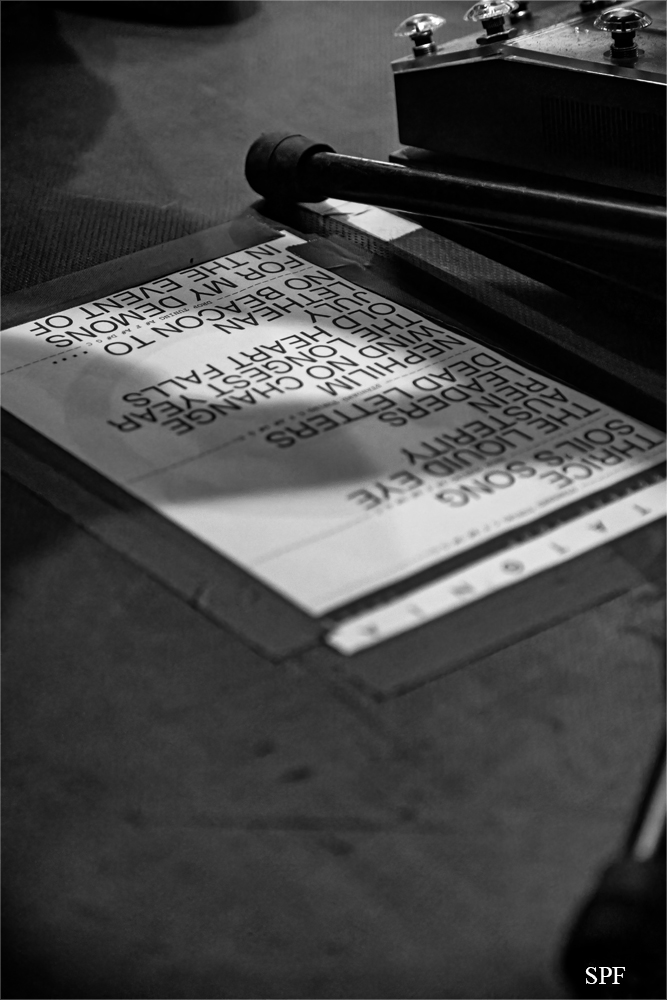 TATONIA
THRICE
SOIL'S SONG
THE LIQUID EYE
AUSTERITY
REIN
LEADERS
DEAD LETTERS
NEPHILIM
WIND NO CHANGE
THE LONGEST YEAR
OLD HEART FALLS
LETHEAN
JULY
NO BEACON TO ....
FOR MY DEMONS
IN THE EVENT OF
SPF